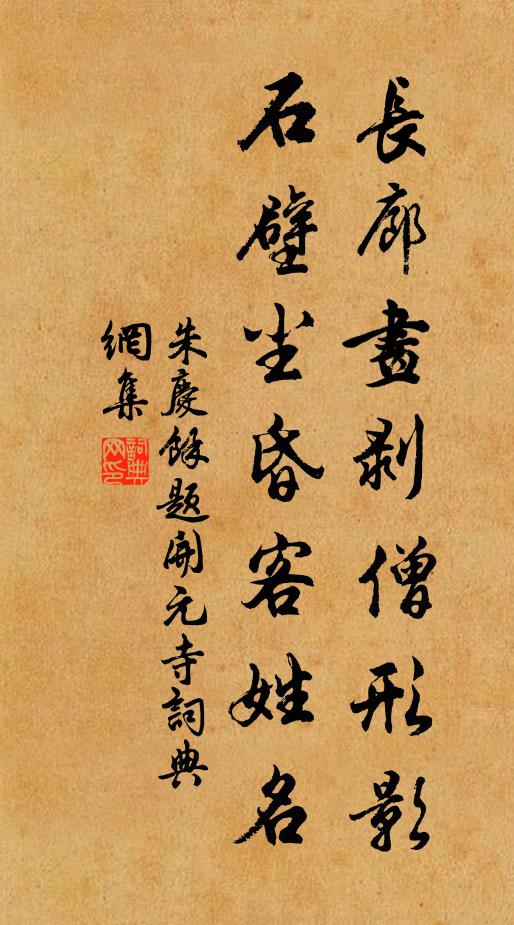 長廊畫剥僧形影
石壁尘昏客姓名
朱慶餘題開元寺詞典
網集
詞典网印